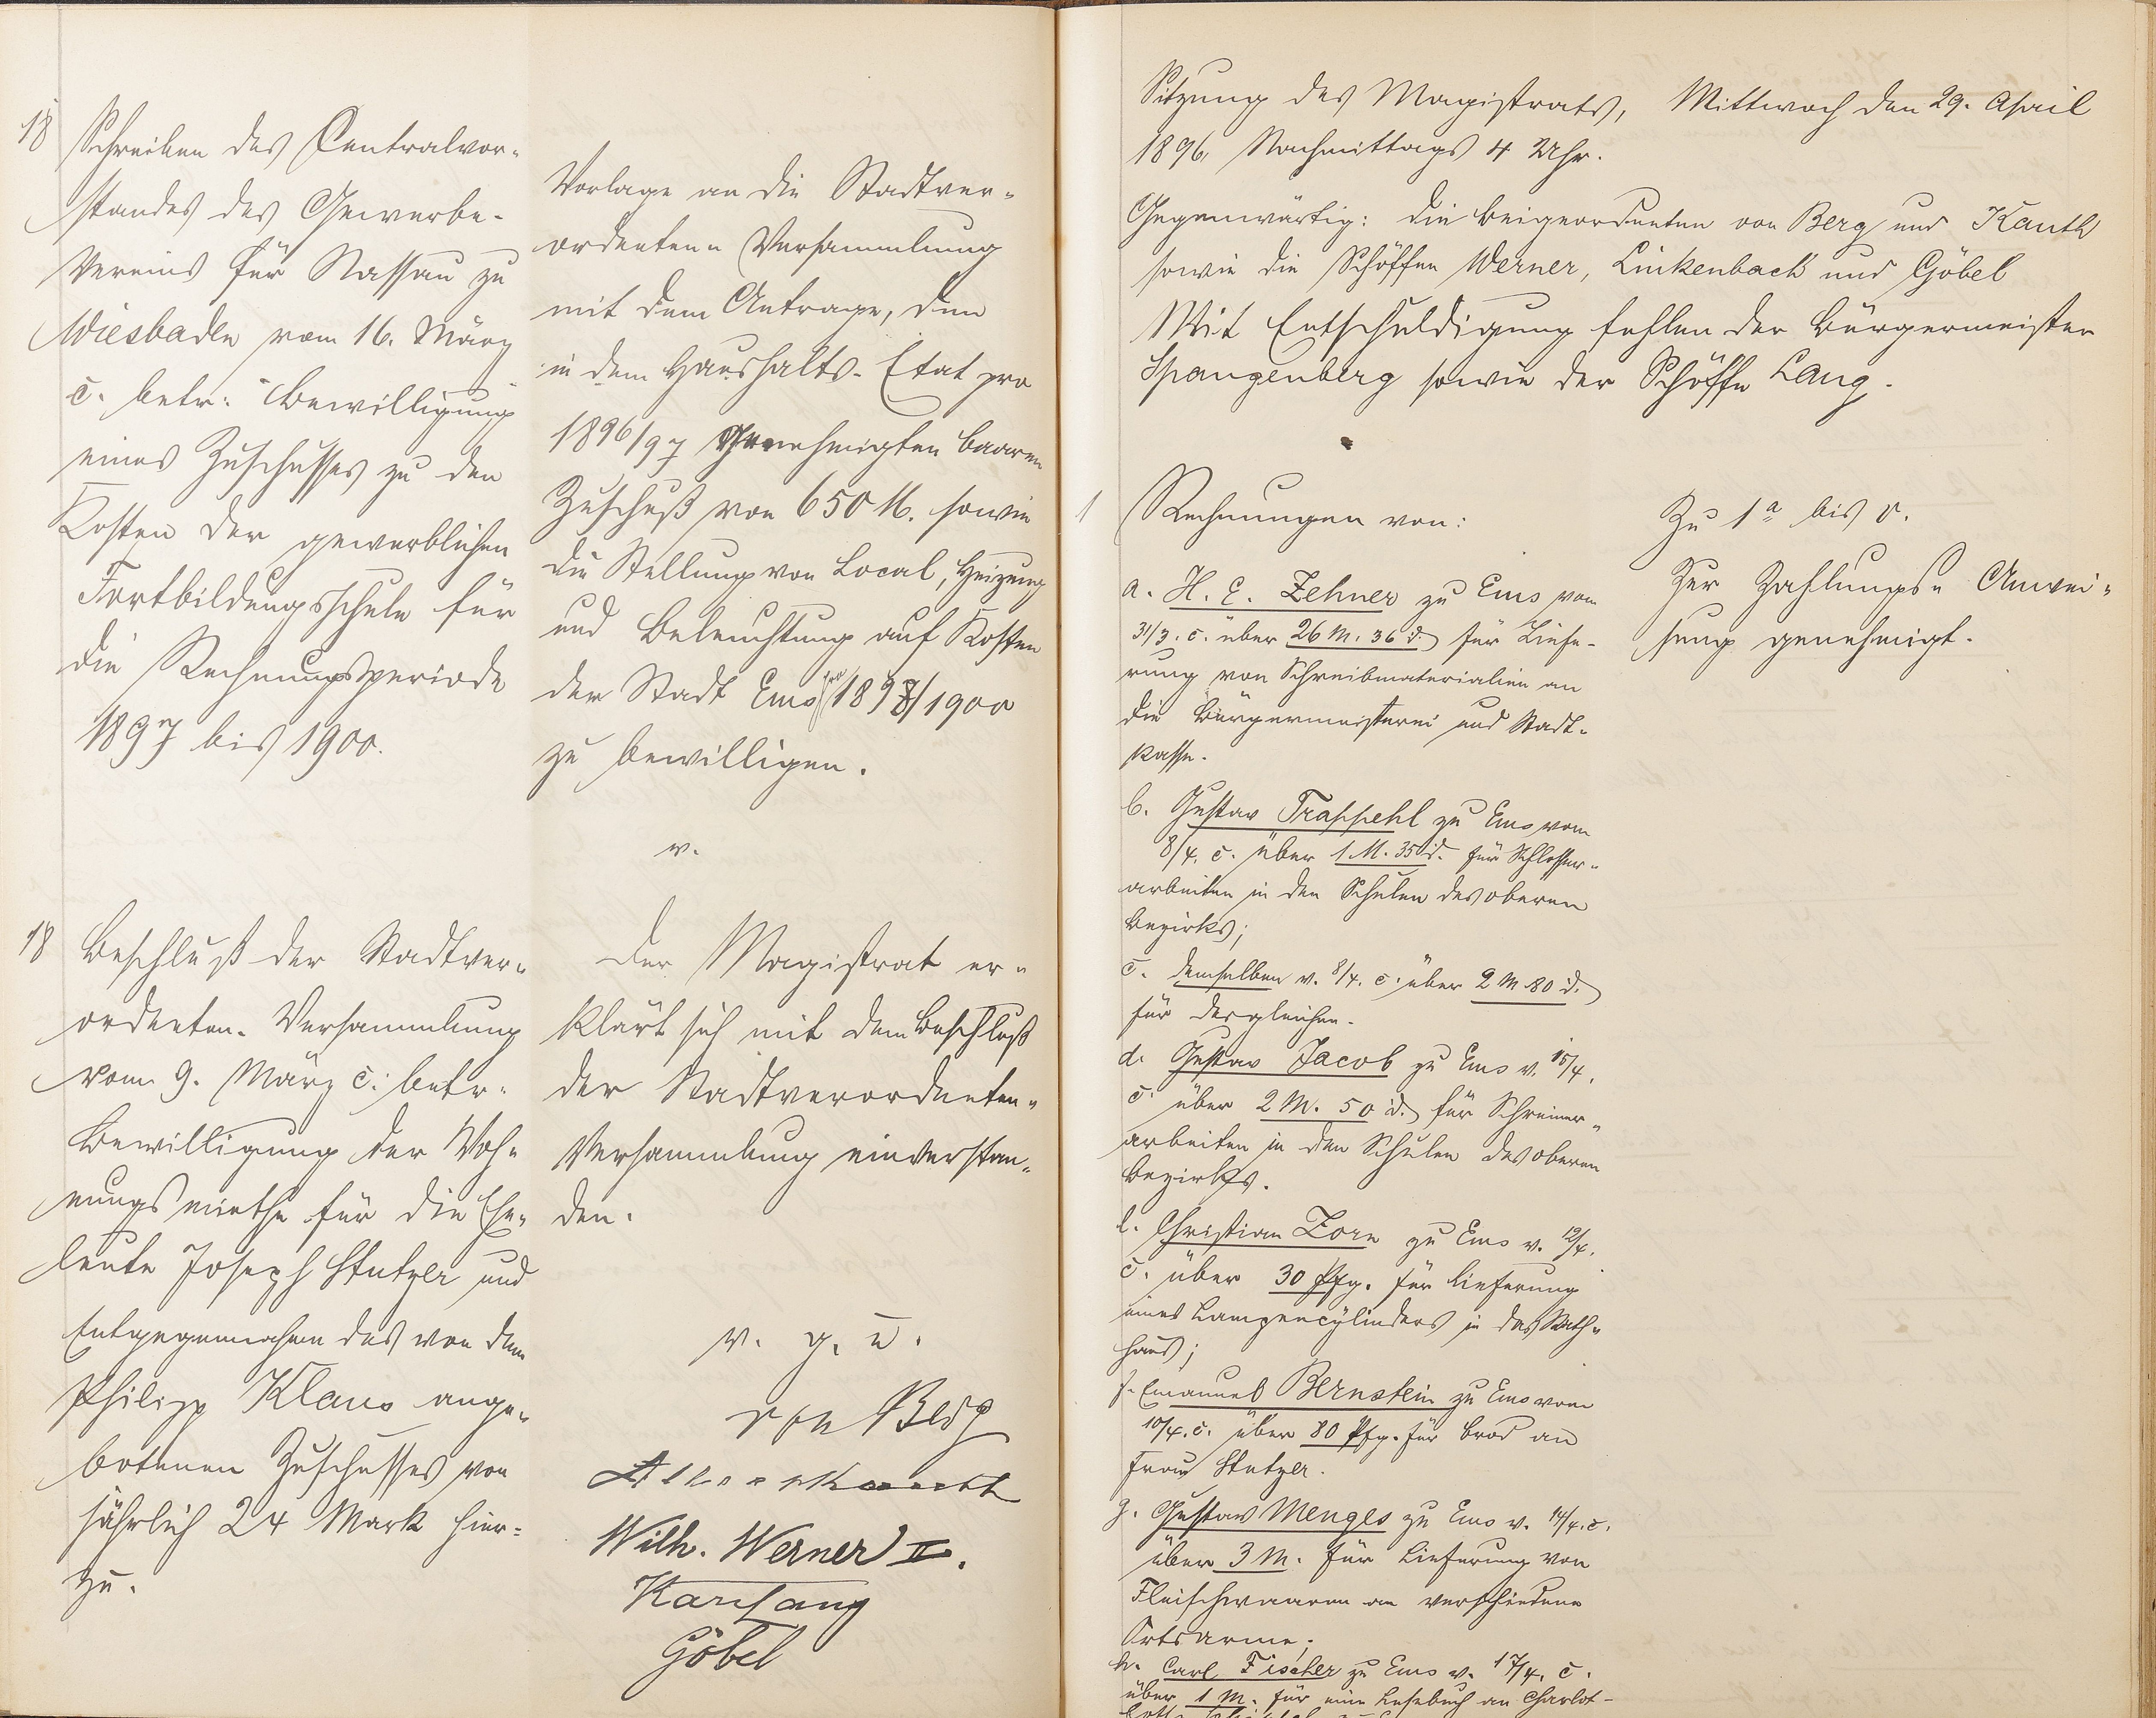 18
Schreiben des Centralvor-
standes des Gewerbe-
Vereins für Nassau zu
Wiesbaden vom 16. März
c. betr: Bewilligung
eines Zuschusses zu den
Kosten der gewerblichen
Fortbildungsschule für
die Rechnungsperiode
1897 bis 1900.
Vorlage an die Stadtver-
ordneten Versammlung
mit dem Antrage, den
in dem Haushalts-Etat pro
1896/97 Genehmigten baaren
Zuschuß von 650 M. sowie
die Stellung von Local, Heizung
und Beleuchtung auf Kosten
der Stadt Ems pro 1897/1900
zu bewilligen.
v.
18
Beschluß der Stadtver-
ordneten-Versammlung
vom 9. März c. betr.
Bewilligung der Woh-
nungsmiethe für die Ehe-
leute Joseph Stutzer und
Entgegennahme des von dem
Philipp Klaus ange-
botenen Zuschusses von
jährlich 24 Mark hier-
zu.
Der Magistrat er-
klärt sich mit dem Beschluß
der Stadtverordneten-
Versammlung einverstan-
den.
v. g. u.
von Berg
Wilh. Werner II.
Karl Lang
Göbel
Sitzung des Magistrats, Mittwoch den 29. April
1896, Nachmittags 4 Uhr.
Gegenwärtig: die Beigeordneten von Berg und Kauth
sowie die Schöffen Werner, Linkenbach und Göbel
Mit Entschuldigung fehlen der Bürgermeister
Spangenberg sowie der Schöffe Lang.
1
Rechnungen von:
a. H. E. Zehner zu Ems vom
31/3. c. über 26 M. 36 d. für Liefe-
rung von Schreibmaterialien an
die Bürgermeisterei und Stadt-
kasse.
b. Gustav Trappehl zu Ems vom
8/4. c. über 1 M. 35 d. für Schlosser-
arbeiten in den Schulen des oberen
Bezirks;
c. demselben v. 8/4. c. über 2 M 80 d.
für dergleichen.
d. Gustav Jacob zu Ems v. 15/4.
c. über 2 M. 50 d. für Schreiner-
arbeiten in den Schulen des oberen
Bezirks.
e. Christian Zorn zu Ems v. 12/4.
c. über 30 Pfg. für Lieferung
eines Lampencylinders in das Rath-
haus;
f. Emanuel Bernstein zu Ems vom
10/4. c. über 80 Pfg. für Brod an
Frau Stutzer.
g. Gustav Menges zu Ems v. 14/4. c.
über 3 M. für Lieferung von
Fleischwaaren an verschiedene
Ortsarme;
h. Carl Fischer zu Ems v. 17/4. c.
über 1 M. für ein Lesebuch an Charlot-
Zu 1a bis v.
Zur Zahlungs- Anwei-
sung genehmigt.